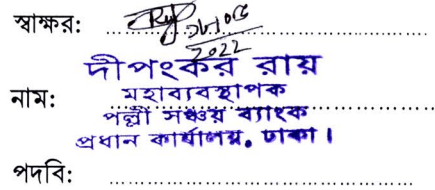 স্বাক্ষর:
2022
দীপংকর রায়
নাম: মহাব্যবস্থাপক
পল্লী সঞ্চয় ব্যাংক
প্রধান কার্যালয়, ঢাকা।
পদবি: